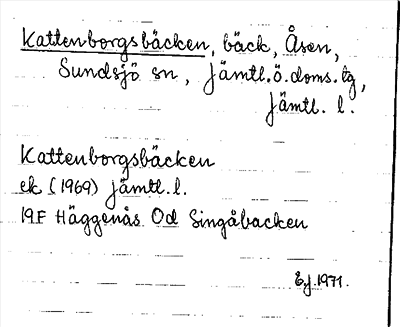 Kattenborgsbäcken, bäck, Åsen,
Sundsjö sn, Jämtl.ö.doms.tg,
Jämtl. l.
Kattenborgsbäcken
ek (1969) Jämtl.l.
19F Häggenås Od Singåbacken
Ej.1971.